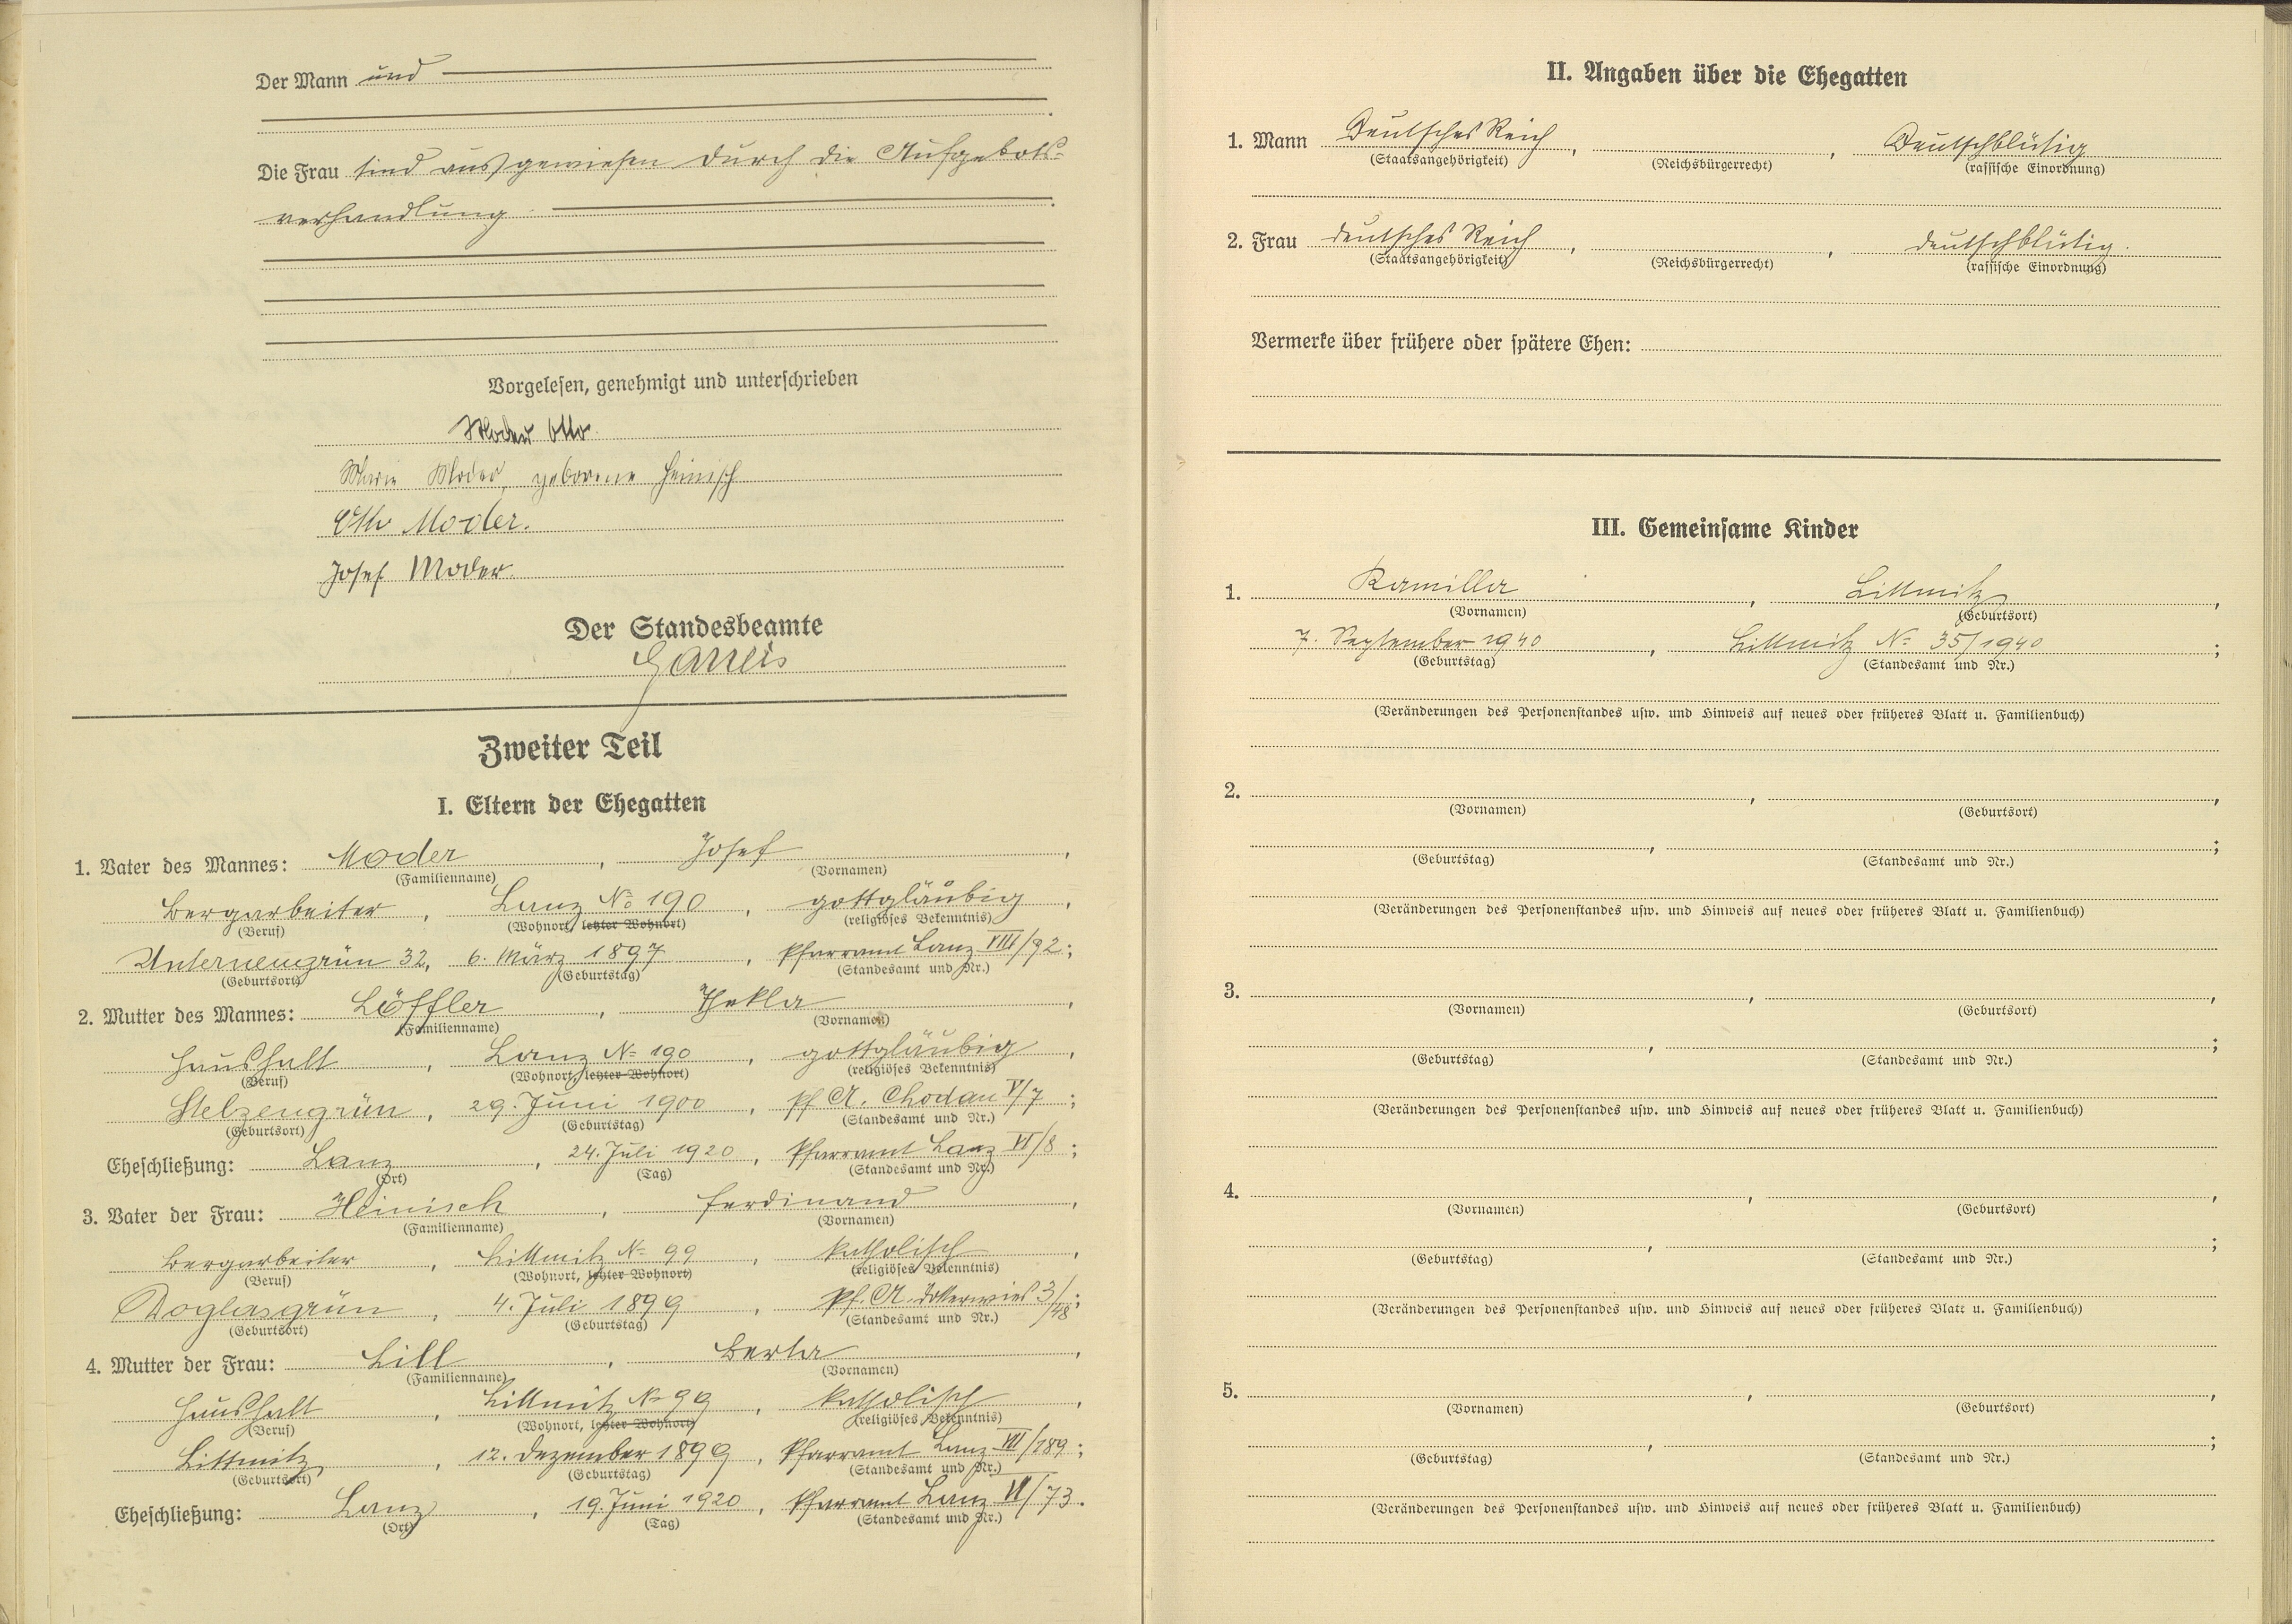 Der Mann und
Die Frau sind ausgewiesen durch die Aufgebots-
verhandlung
Vorgelesen, genehmigt und unterschrieben
Moder Otto.
Marie Moder, geborene Heinisch
Otto Moder.
Josef Moder.
Der Standesbeamte
Zweiter Teil
I. Eltern der Ehegatten
1. Vater des Mannes: Moder, Josef,
(Familienname) (Vornamen)
Bergarbeiter, Lanz No 190, gottgläubig,
(Beruf) (Wohnort, letzter Wohnort) (religiöses Bekenntnis)
Unterneugrün 32, 6. März 1897, Pfarramt Lanz VIII/92;
(Geburtsort) (Geburtstag) (Standesamt und Nr.)
2. Mutter des Mannes: Löffler, Thekla,
(Familienname) (Vornamen)
Haushalt, Lanz No 190, gottgläubig,
(Beruf) (Wohnort, letzter Wohnort) (religiöses Bekenntnis)
Stelzengrün, 29. Juni 1900, Pf. A. Chodau V/7;
(Geburtsort) (Geburtstag) (Standesamt und Nr.)
Eheschließung: Lanz, 24. Juli 1920, Pfarramt Lanz VI/8;
(Ort) (Tag) (Standesamt und Nr.)
3. Vater der Frau: Heinisch, Ferdinand,
(Familienname) (Vornamen)
Bergarbeiter, Littmitz No 99, katholisch,
(Beruf) (Wohnort, letzter Wohnort) (religiöses Bekenntnis)
Doglasgrün, 4. Juli 1899, Pf. A. 3/48;
(Geburtsort) (Geburtstag) (Standesamt und Nr.)
4. Mutter der Frau: Lill, Berta,
(Familienname) (Vornamen)
Haushalt, Littmitz No 99, katholisch,
(Beruf) (Wohnort, letzter Wohnort) (religiöses Bekenntnis)
Littmitz, 12. Dezember 1899, Pfarramt Lanz VIII/189;
(Geburtsort) (Geburtstag) (Standesamt und Nr.)
Eheschließung: Lanz, 19. Juni 1920, Pfarramt Lanz VI/73.
(Ort) (Tag) (Standesamt und Nr.)
II. Angaben über die Ehegatten
1. Mann Deutsches Reich, , Deutschblütig
(Staatsangehörigkeit) (Reichsbürgerrecht) (rassische Einordnung)
2. Frau deutsches Reich, , deutschblütig.
(Staatsangehörigkeit) (Reichsbürgerrecht) (rassische Einordnung)
Vermerke über frühere oder spätere Ehen:
III. Gemeinsame Kinder
1. Kamilla, Littmitz,
(Vornamen) (Geburtsort)
7. September 1940, Littmitz No 35/1940;
(Geburtstag) (Standesamt und Nr.)
(Veränderungen des Personenstandes usw. und Hinweis auf neues oder früheres Blatt u. Familienbuch)
2. , ,
(Vornamen) (Geburtsort)
, ;
(Geburtstag) (Standesamt und Nr.)
(Veränderungen des Personenstandes usw. und Hinweis auf neues oder früheres Blatt u. Familienbuch)
3. , ,
(Vornamen) (Geburtsort)
, ;
(Geburtstag) (Standesamt und Nr.)
(Veränderungen des Personenstandes usw. und Hinweis auf neues oder früheres Blatt u. Familienbuch)
4. , ,
(Vornamen) (Geburtsort)
, ;
(Geburtstag) (Standesamt und Nr.)
(Veränderungen des Personenstandes usw. und Hinweis auf neues oder früheres Blatt u. Familienbuch)
5. , ,
(Vornamen) (Geburtsort)
, ;
(Geburtstag) (Standesamt und Nr.)
(Veränderungen des Personenstandes usw. und Hinweis auf neues oder früheres Blatt u. Familienbuch)